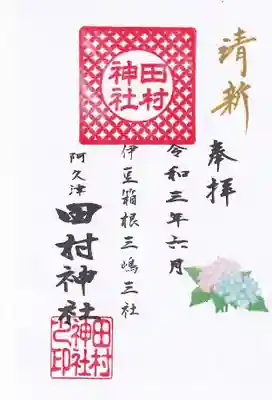 清新
奉拝
令和三年六月
伊豆箱根三嶋三社
阿久津
田村神社
田村
神社
田村
神社
之印